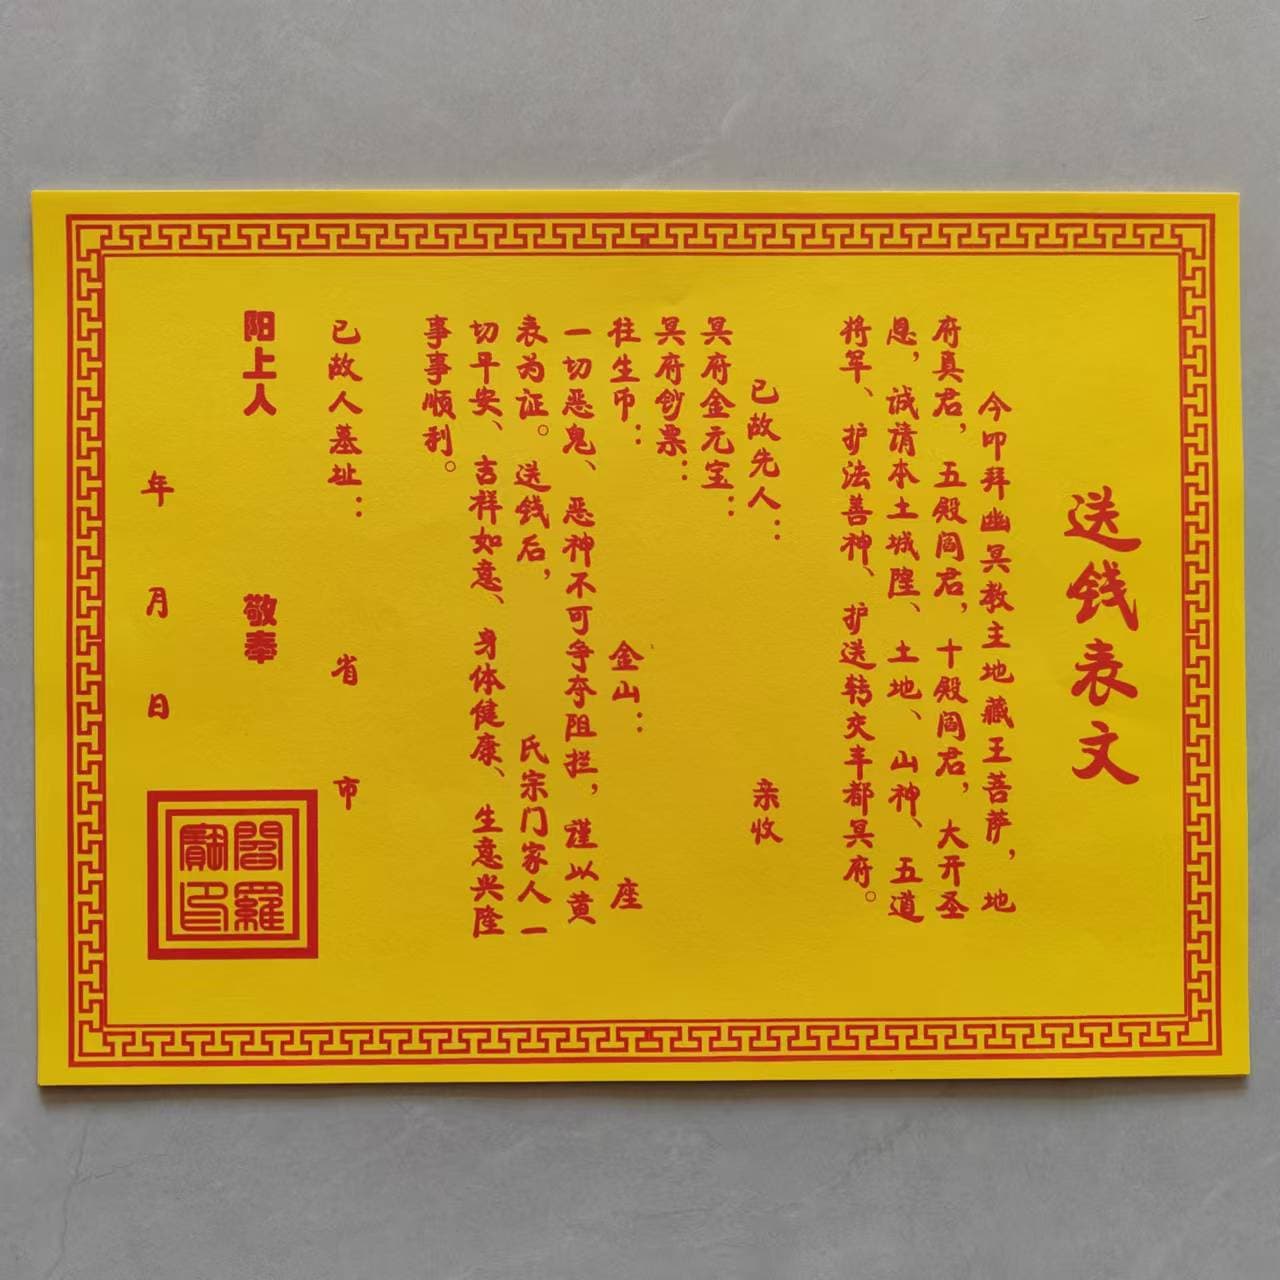 送钱表文
今叩拜幽冥教主地藏王菩萨，地
府真君，五殿阎君，十殿阎君，大开圣
恩，诚请本土城隍、土地、山神、五道
将军、护法善神、护送转交丰都冥府。
已故先人： 亲收
冥府金元宝：
冥府钞票：
往生币： 金山： 座
一切恶鬼、恶神不可争夺阻拦，谨以黄
表为证。送钱后， 氏宗门家人一
切平安、吉祥如意、身体健康、生意兴隆
事事顺利。
已故人墓址： 省 市
阳上人 敬奉
年 月 日
閻羅
寶印